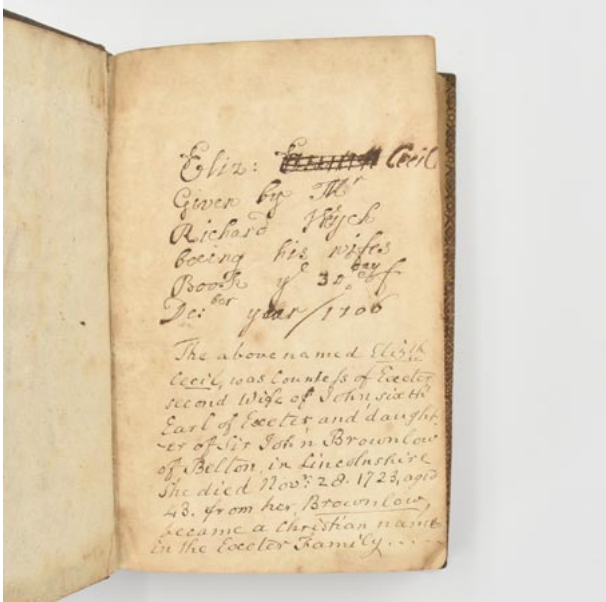 Eliz: Cecil
Given by Mr
Richard Wych
being his wifes
Book ye 30 day of
De:ber year / 1706
The above named Elizth
Cecil, was Countess of Exeter
second Wife of John sixth
Earl of Exeter and daught
-er of Sir John Brownlow
of Belton, in Lincolnshire
She died Novr: 28. 1723, aged
43. from her, Brownlow,
became a Christian name
in the Exeter Family.....